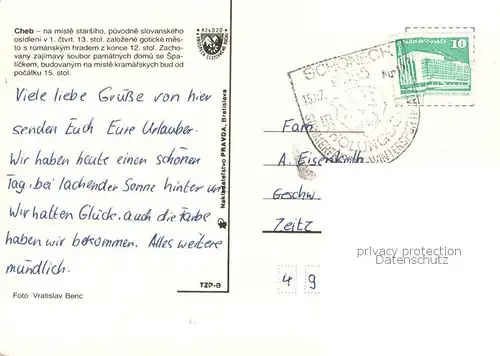 Cheb – na místě staršího, původně slovanského
osídlení v 1. čtvrt. 13. stol. založené gotické měs-
to s románským hradem z konce 12. stol. Zacho-
vaný zajímavý soubor památných domů se Špa-
líčkem, budovaným na místě kramářských bud od
počátku 15. stol.
Kčs 0,20
Viele liebe Grüße von hier
senden Euch Eure Urlauber.
Wir haben heute einen schönen
Tag, bei lachender Sonne hinter uns
Wir hatten Glück, auch die Farbe
haben wir bekommen. Alles weitere
mündlich.
Foto Vratislav Benc
Nakladatelství PRAVDA, Bratislava
TZP-B
SCHÖNECK
10
Fam.
A. Eisenkolb
Geschw.
Zeitz
4 9
privacy protection
Datenschutz